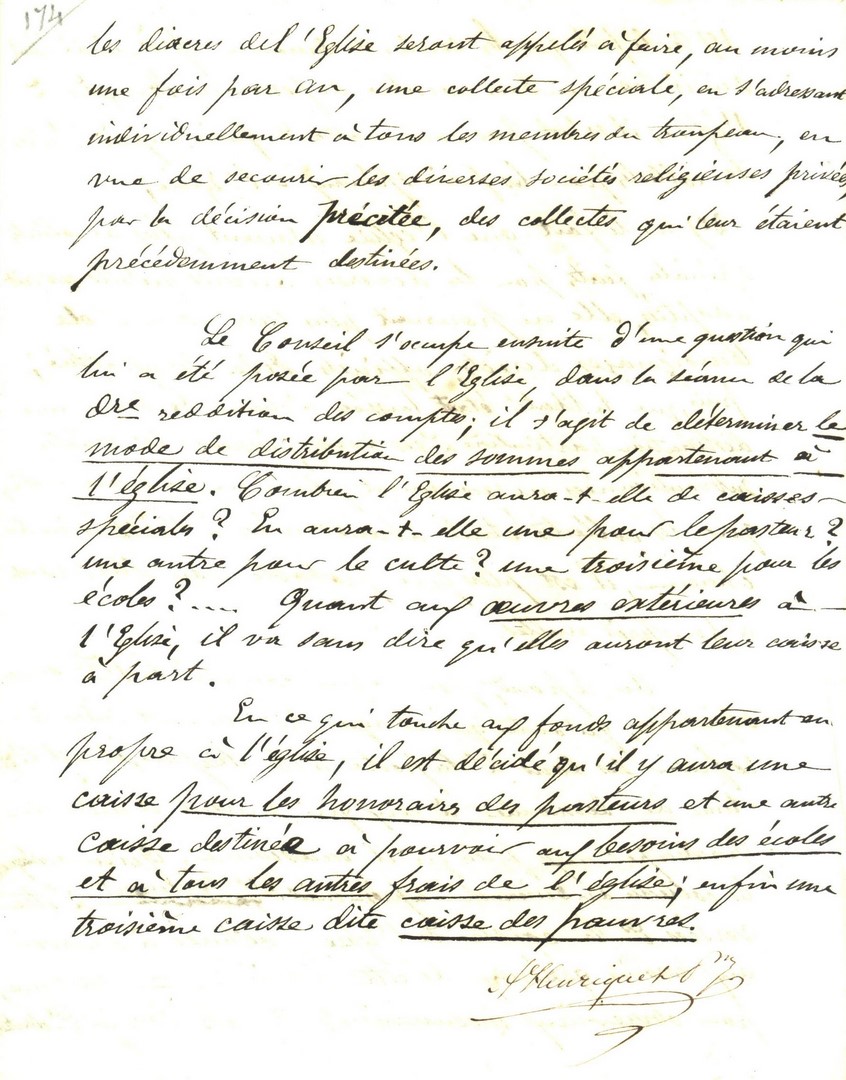 174
les diacres del'Eglise seront appelés à faire, au moins
une fois par an, une collecte spéciale, en s'adressant
individuellement à tous les membres du troupeau, en
vue de secourir les diverses sociétés religieuses privées,
par la décision précitée, des collectes qui leur étaient
précédemment destinées.
Le Conseil s'occupe ensuite d'une question qui
lui a été posée par l'Eglise, dans la séance de la
dre reddition des comptes; il s'agit de déterminer le
mode de distribution des sommes appartenant à
l'église. Combien l'Eglise aura-t-elle de caisses
spéciales? En aura-t-elle une pour le pasteur?
une autre pour le culte? une troisième pour les
écoles?.... Quant aux œuvres extérieures à
l'Eglise, il va sans dire qu'elles auront leur caisse
à part.
En ce qui touche aux fonds appartenant en
propre à l'église, il est décidé qu'il y aura une
caisse pour les honoraires des pasteurs et une autre
caisse destinée à pourvoir aux besoins des écoles
et à tous les autres frais de l'église; enfin une
troisième caisse dite caisse des pauvres.
A Henriquet